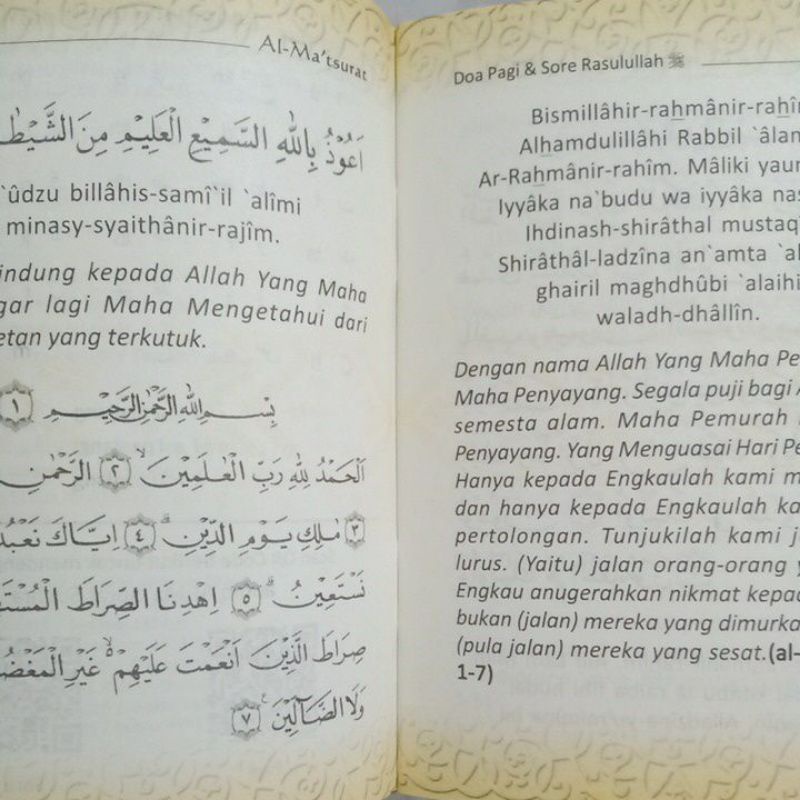 Al-Ma'tsurat
اَعُوْذُ بِاللّٰهِ السَّمِيْعِ الْعَلِيْمِ مِنَ الشَّيْطَ
`ûdzu billâhis-samî`il `alîmi
minasy-syaithânir-rajîm.
indung kepada Allah Yang Maha
gar lagi Maha Mengetahui dari
etan yang terkutuk.
بِسْمِ اللّٰهِ الرَّحْمٰنِ الرَّحِيْمِ ١
اَلْحَمْدُ لِلّٰهِ رَبِّ الْعٰلَمِيْنَ ۙ ٢ الرَّحْمٰنِ
٣ مٰلِكِ يَوْمِ الدِّيْنِ ۗ ٤ اِيَّاكَ نَعْبُدُ
نَسْتَعِيْنُ ۗ ٥ اِهْدِنَا الصِّرَاطَ الْمُسْتَقِ
صِرَاطَ الَّذِيْنَ اَنْعَمْتَ عَلَيْهِمْ ۙ غَيْرِ الْمَغْضُ
وَلَا الضَّاۤلِّيْنَ ࣖ ٧
Doa Pagi & Sore Rasulullah ﷺ
Bismillâhir-rahmânir-rahîm
Alhamdulillâhi Rabbil `âlam
Ar-Rahmânir-rahîm. Mâliki yaum
Iyyâka na`budu wa iyyâka nas
Ihdinash-shirâthal mustaq
Shirâthâl-ladzîna an`amta `al
ghairil maghdhûbi `alaihi
waladh-dhâllîn.
Dengan nama Allah Yang Maha Pe
Maha Penyayang. Segala puji bagi A
semesta alam. Maha Pemurah
Penyayang. Yang Menguasai Hari Pe
Hanya kepada Engkaulah kami m
dan hanya kepada Engkaulah ka
pertolongan. Tunjukilah kami j
lurus. (Yaitu) jalan orang-orang y
Engkau anugerahkan nikmat kepad
bukan (jalan) mereka yang dimurka
(pula jalan) mereka yang sesat.(al-
1-7)